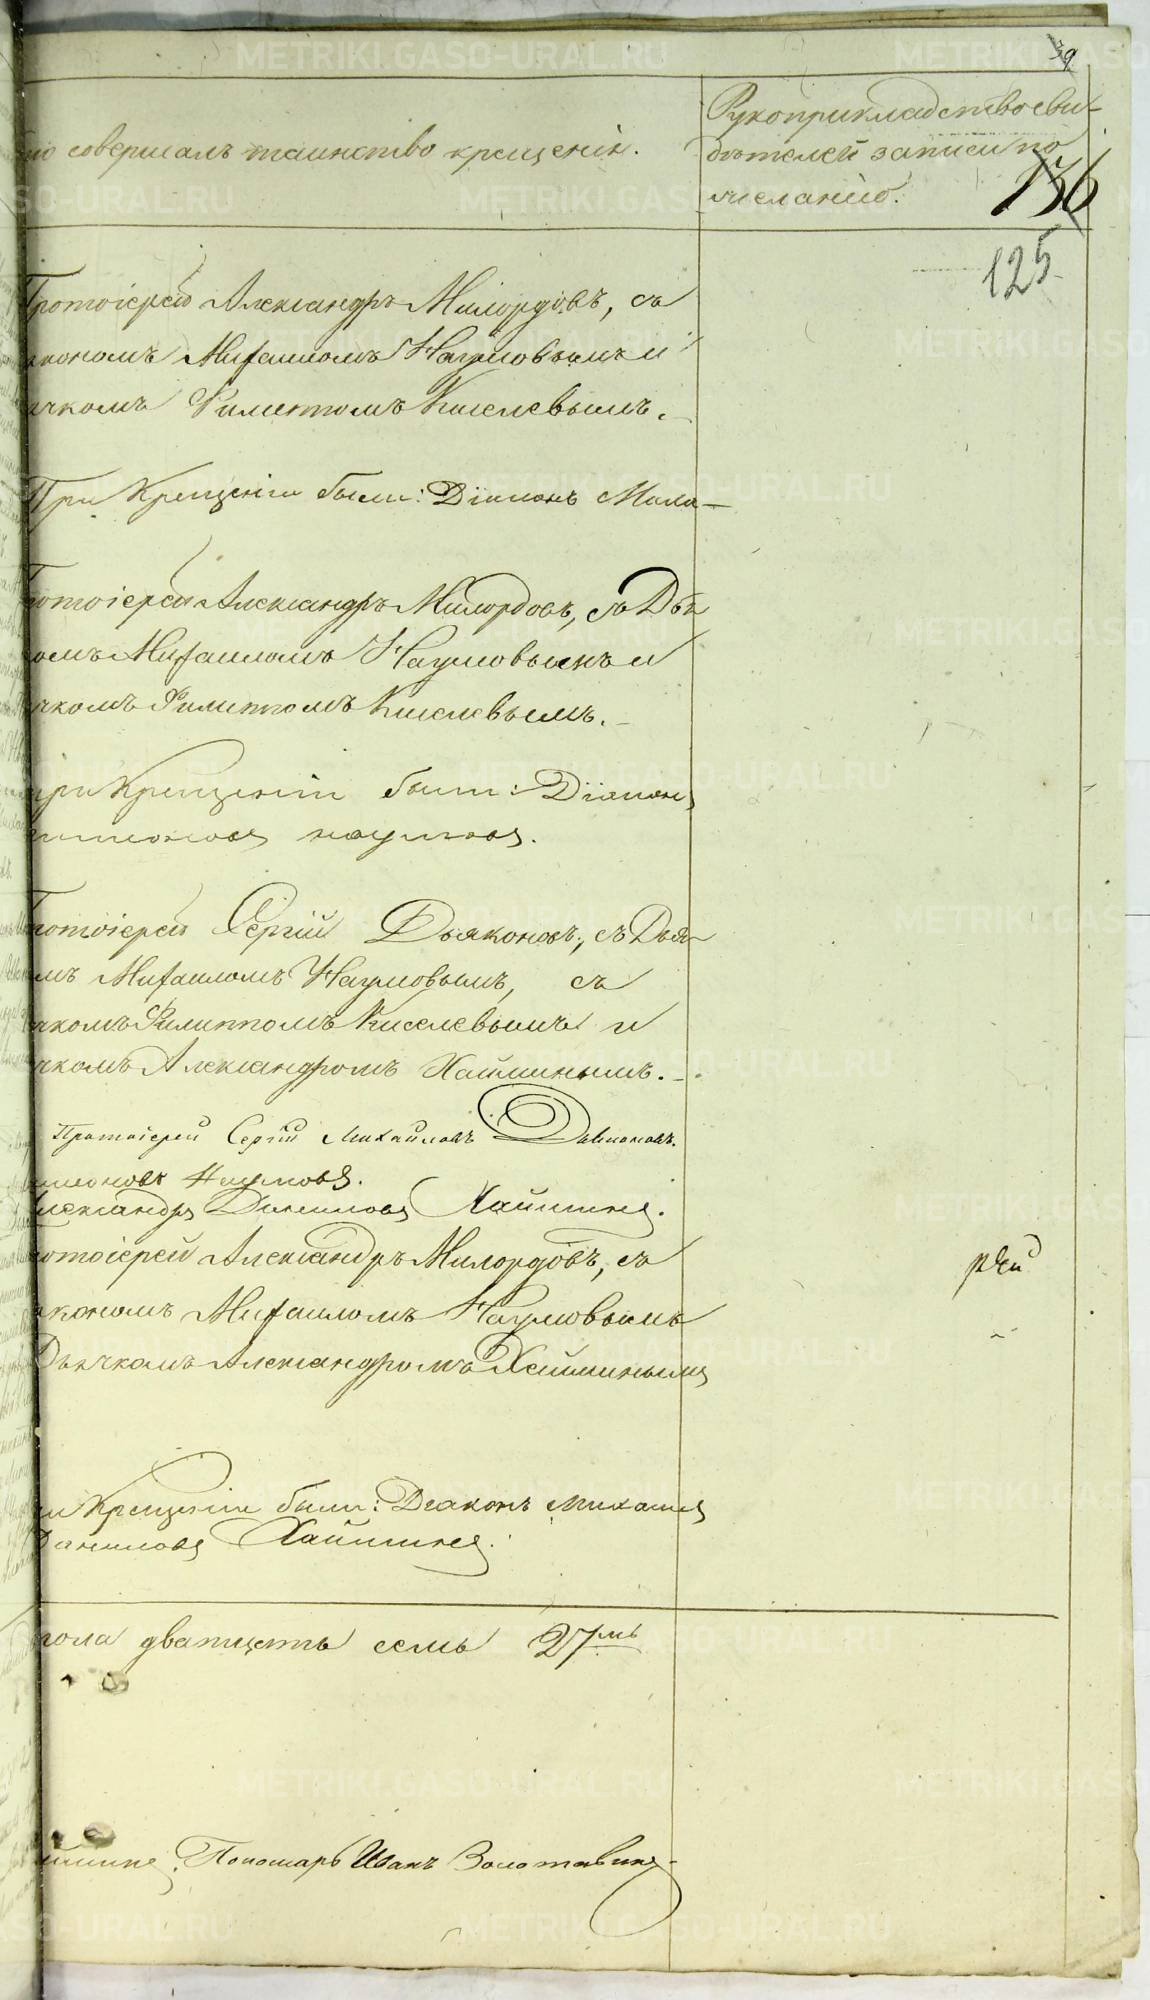 39
Рукоприкладство сви-
то совершалъ таинство крещенія.
дѣтелей записи по
желанію.
136
125
Протоіерей Александръ Милордовъ, съ
акономъ Михаиломъ Наумовымъ и
ячкомъ Филиппомъ Киселевымъ.
При Крещеніи были: Діаконъ Миха-
ротоіерей Александръ Милордовъ, съ Дья
омъ Михаиломъ Наумовымъ и
чкомъ Филиппомъ Киселевымъ.
при Крещеніи были: Діаконъ
Наумовъ.
ротоіерей Сергій Дьяконовъ, съ Дья-
мъ Михаиломъ Наумовымъ, съ
чкомъ Филиппомъ Киселевымъ и
чкомъ Александромъ Хайминымъ.
Протоіерей Сергій Михайловъ Дьяконовъ.
имеоновъ Наумовъ.
лександръ Даниловъ Хайминъ.
ротоіерей Александръ Милордовъ, съ
акономъ Михаиломъ Наумовымъ
Дьячкомъ Александромъ Хайминымъ
ри Крещеніи были: Діаконъ Михаилъ
Даниловъ Хайминъ.
пола дватцать семь 27мь
айминъ. Пономарь Иванъ Золотавинъ
METRIKI.GASO-URAL.RU